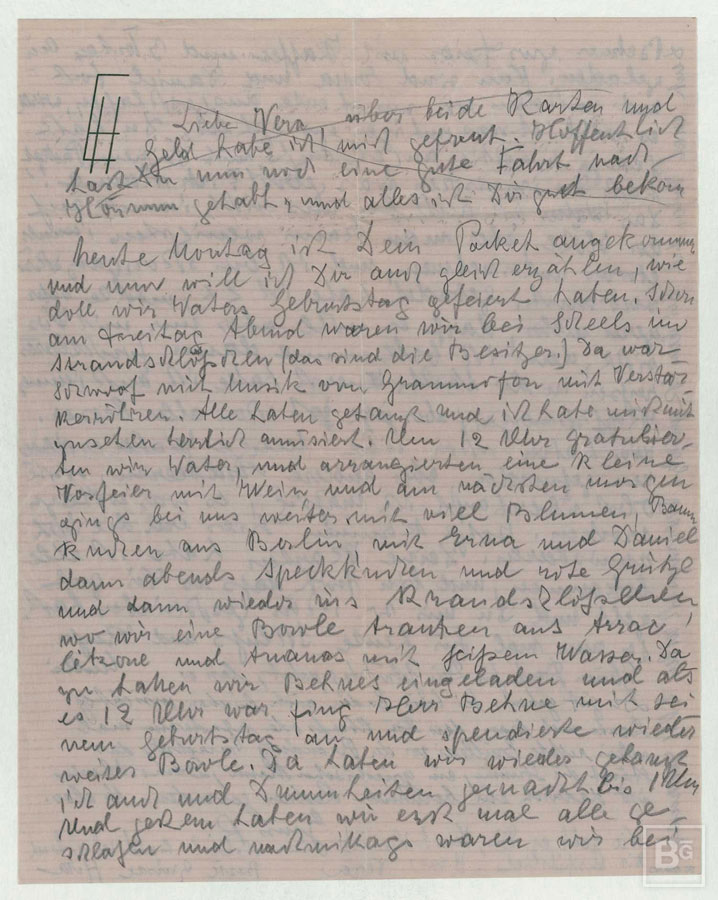 Liebe Vera, über beide Karten und
Geld habe ich mich gefreut. Hoffentlich
hast Du nun noch eine gute Fahrt nach
gehabt, und alles ist Dir gut bekom
heute Montag ist Dein Packet angekommen
und nun will ich Dir auch gleich erzählen, wie
doll wir Vaters Geburtstag gefeiert haben. Schon
am Freitag Abend waren wir bei Scheels im
Strandschlößchen (das sind die Besitzer.) Da war
mit Musik von Grammofon mit Verstär-
kerröhren. Alle haben getanzt und ich habe mich mit
zusehen herrlich amüsiert. Um 12 Uhr gratulier-
ten wir Vater, und arrangierten eine kleine
Vorfeier mit Wein und am nächsten morgen
gings bei uns weiter mit viel Blumen, Baum
kuchen aus Berlin, mit Erna und Daniel
dann abends Speckkuchen und rote Grütze
und dann wieder ins Strandschlößchen,
wo wir eine Bowle tranken aus Arrac,
Zitrone und Ananas mit heißem Wasser. Da
zu haben wir Behnes eingeladen und als
es 12 Uhr war fing Herr Behne mit sei
nem Geburtstag an und spendierte wieder
weiter Bowle. Da haben wir wieder getanzt
ich auch und Dummheiten gemacht bis 1 Uhr
Und gestern haben wir erst mal alle ge-
schlafen und nachmittags waren wir bei
BG